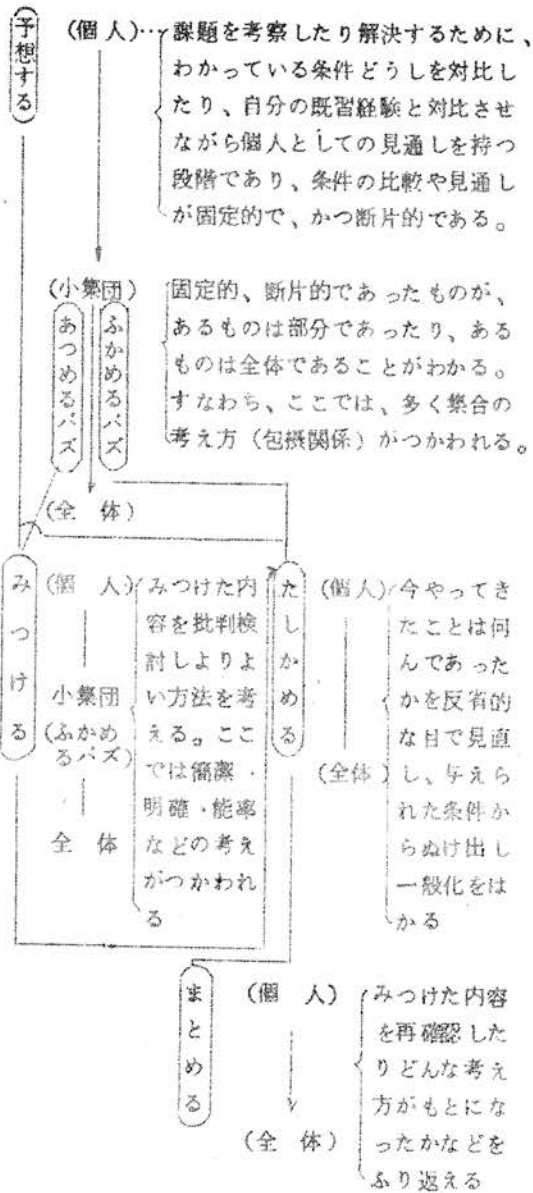 予想する
(個人)…
課題を考察したり解決するために、
わかっている条件どうしを対比し
たり、自分の既習経験と対比させ
ながら個人としての見通しを持つ
段階であり、条件の比較や見通し
が固定的で、かつ断片的である。
(小集団)
あつめるバズ
ふかめるバズ
固定的、断片的であったものが、
あるものは部分であったり、ある
ものは全体であることがわかる。
すなわち、ここでは、多く集合の
考え方(包摂関係)がつかわれる。
(全 体)
みつける
(個 人)
小集団
(ふかめ
るバズ)
全 体
みつけた内
容を批判検
討しよりよ
い方法を考
える。ここ
では簡潔・
明確・能率
などの考え
がつかわれ
る
たしかめる
(個人)
(全体)
今やってき
たことは何
んであった
かを反省的
な目で見直
し、与えら
れた条件か
らぬけ出し
一般化をは
かる
まとめる
(個 人)
(全 体)
みつけた内容
を再確認した
りどんな考え
方がもとにな
ったかなどを
ふり返える